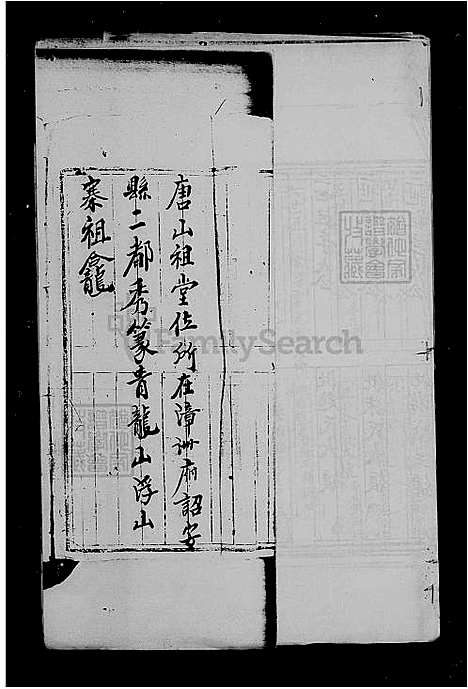 唐山祖堂位所在漳州府詔安
縣二都秀篆青龍山浮山
寨祖龕
FamilySearch